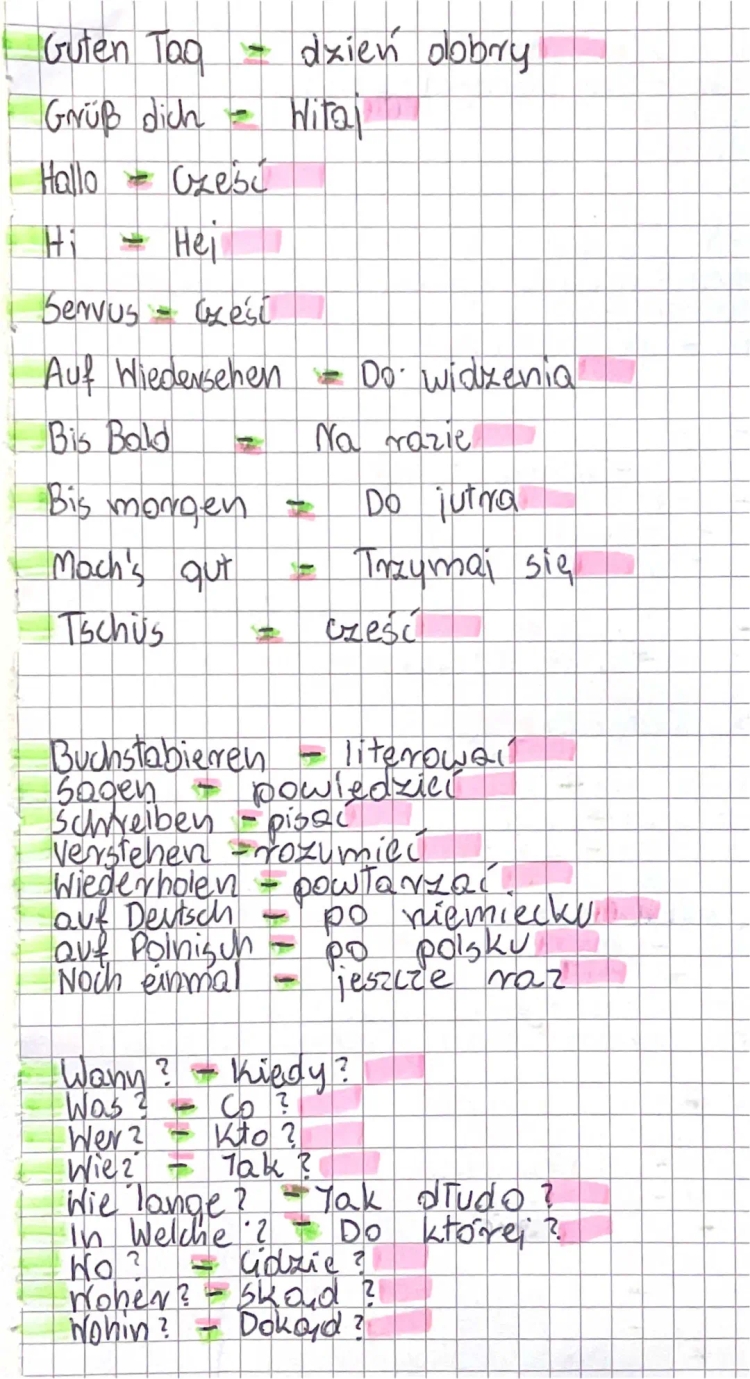 Guten Tag - dzień dobry
Grüß dich - Witaj
Hallo - Cześć
Hi - Hej
Servus - Cześć
Auf Wiedersehen - Do widzenia
Bis Bald - Na razie
Bis morgen - Do jutra
Mach's gut - Trzymaj się
Tschüs - cześć
Buchstabieren - literować
Sagen - powiedzieć
Schreiben - pisać
Verstehen - rozumieć
Wiederholen - powtarzać
auf Deutsch - po niemiecku
auf Polnisch - po polsku
Noch einmal - jeszcze raz
Wann? - Kiedy?
Was? - Co?
Wer? - Kto?
Wie? - Jak?
Wie lange? - Jak dłudo?
In Welche? - Do której?
Wo? - Gdzie?
Woher? - Skąd?
Wohin? - Dokąd?